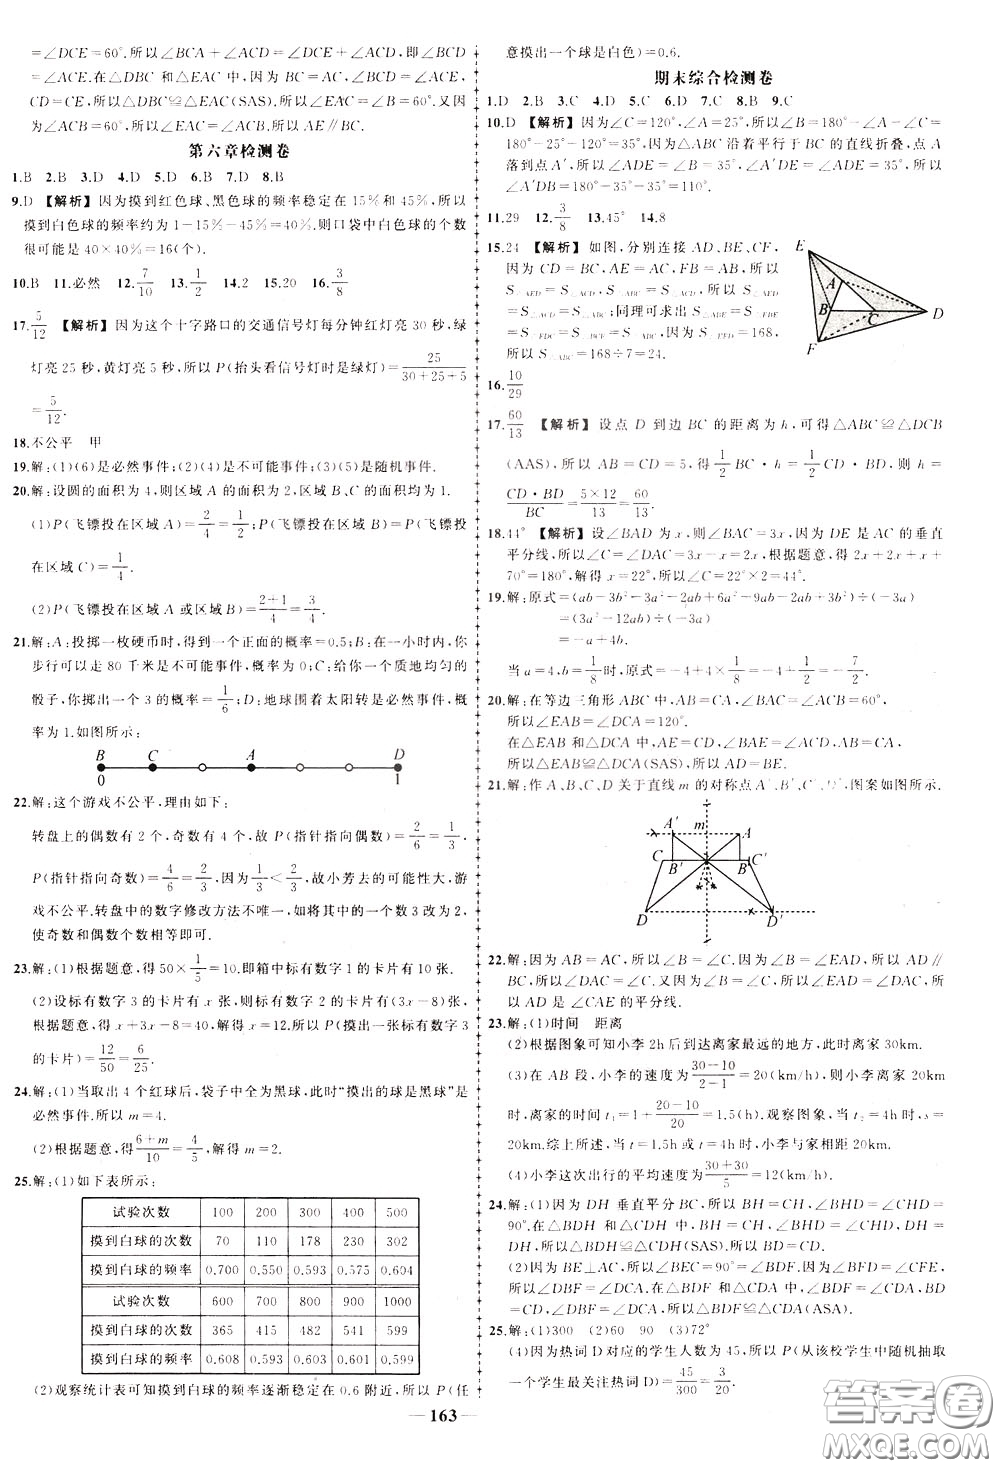 =∠DCE=60°.所以∠BCA+∠ACD=∠DCE+∠ACD,即∠BCD
=∠ACE.在△DBC和△EAC中,因为BC=AC,∠BCD=∠ACE,
CD=CE,所以△DBC≌△EAC(SAS).所以∠DBC=∠EAC=60°.又因
为∠ACB=60°,所以∠EAC=∠ACB.所以AE∥BC.
第六章检测卷
1.B 2.B 3.D 4.D 5.D 6.B 7.D 8.B
9.D 【解析】因为摸到红色球、黑色球的频率稳定在15%和45%,所以
摸到白色球的频率约为1-15%-45%=40%,则口袋中白色球的个数
很可能是40×40%=16(个).
10.B 11.必然 12.7/10 13.1/2 14.2 15.20 16.3/8
17.5/12 【解析】因为这个十字路口的交通信号灯每分钟红灯亮30秒,绿
灯亮25秒,黄灯亮5秒,所以P(抬头看信号灯时是绿灯)=25/(30+25+5)
=5/12.
18.不公平 甲
19.解:(1)(6)是必然事件;(2)(4)是不可能事件;(3)(5)是随机事件.
20.解:设圆的面积为4,则区域A的面积为2,区域B、C的面积均为1.
(1)P(飞镖投在区域A)=2/4=1/2;P(飞镖投在区域B)=P(飞镖投
在区域C)=1/4.
(2)P(飞镖投在区域A或区域B)=(2+1)/4=3/4.
21.解:A:投掷一枚硬币时,得到一个正面的概率=0.5;B:在一小时内,你
步行可以走80千米是不可能事件,概率为0;C:给你一个质地均匀的
骰子,你掷出一个3的概率=1/6;D:地球围着太阳转是必然事件,概
率为1.如图所示:
B C A D
0 1
22.解:这个游戏不公平,理由如下:
转盘上的偶数有2个,奇数有4个,故P(指针指向偶数)=2/6=1/3,
P(指针指向奇数)=4/6=2/3,因为1/3<2/3,故小芳去的可能性大,游
戏不公平.转盘中的数字修改方法不唯一,如将其中的一个数3改为2,
使奇数和偶数个数相等即可.
23.解:(1)根据题意,得50×1/5=10.即箱中标有数字1的卡片有10张.
(2)设标有数字3的卡片有x张,则标有数字2的卡片有(3x-8)张,
根据题意,得x+3x-8=40,解得x=12.所以P(摸出一张标有数字3
的卡片)=12/50=6/25.
24.解:(1)当取出4个红球后,袋子中全为黑球,此时“摸出的球是黑球”是
必然事件.所以m=4.
(2)根据题意,得(6+m)/10=4/5,解得m=2.
25.解:(1)如下表所示:
试验次数 100 200 300 400 500
摸到白球的次数 70 110 178 230 302
摸到白球的频率 0.700 0.550 0.593 0.575 0.604
试验次数 600 700 800 900 1000
摸到白球的次数 365 415 482 541 599
摸到白球的频率 0.608 0.593 0.603 0.601 0.599
(2)观察统计表可知摸到白球的频率逐渐稳定在0.6附近,所以P(任
意摸出一个球是白色)=0.6.
期末综合检测卷
1.D 2.B 3.C 4.D 5.C 6.D 7.C 8.B 9.C
10.D 【解析】因为∠C=120°,∠A=25°,所以∠B=180°-∠A-∠C=
180°-25°-120°=35°.因为△ABC沿着平行于BC的直线折叠,点A
落到点A′,所以∠ADE=∠B=35°,∠A′DE=∠ADE=35°,所以
∠A′DB=180°-35°-35°=110°.
11.29 12.3/8 13.45° 14.8
15.24 【解析】如图,分别连接AD、BE、CF,
因为CD=AC,AE=CA,FB=AB,所以
S△AED=S△ACD,S△ACD=S△ABC,所以S△AED
=S△ACD=S△ABC;同理可求出S△ADE=S△BDE
所以S△ABC=168÷7=24.
E
A
B
C
D
F
16.10/29
17.60/13 【解析】设点D到边BC的距离为h,可得△ABC≌△DCB
(AAS),所以AB=CD=5,得1/2BC·h=1/2CD·BD,则h=
CD·BD/BC=5×12/13=60/13.
18.44° 【解析】设∠BAD为x,则∠BAC=3x,因为DE是AC的垂直
平分线,所以∠C=∠DAC=3x-x=2x.根据题意,得2x+2x+x+
70°=180°,解得x=22°,所以∠C=∠DAC=22°×2=44°.
19.解:原式=(ab-3b²-3a²-2ab+6a²-9ab-2ab+3b²)÷(-3a)
=(3a²-12ab)÷(-3a)
=-a+4b.
当a=4,b=1/8时,原式=-4+4×1/8=-4+1/2=-7/2.
20.解:在等边三角形ABC中,AB=CA,∠BAC=∠ACB=60°,
所以∠EAB=∠DCA=120°.
在△EAB和△DCA中,AE=CD,∠EAB=∠DCA,AB=CA,
所以△EAB≌△DCA(SAS),所以AD=BE.
21.解:作A、B、C、D关于直线m的对称点A′、B′、C′、D′,图案如图所示.
A′ m A
C B′ B C′
D D′
22.解:因为AB=AC,所以∠B=∠C.又因为∠DAE=∠B,所以AD∥
BC,所以∠DAC=∠C.又因为∠B=∠C,所以∠DAE=∠DAC,所
以AD是∠CAE的平分线.
23.解:(1)时间 距离
(2)根据图象可知小李2h后到达离家最远的地方,此时离家30km.
(3)在AB段,小李的速度为(30-10)/(2-1)=20(km/h),当离家20km
时,离家的时间t₁=1+(20-10)/20=1.5(h).观察图象,当t₂=4h时,s=
20km.综上所述,当t=1.5h或t=4h时,小李与家相距20km.
(4)小李这次出行的平均速度为(30+30)/5=12(km/h).
24.解:(1)因为DH垂直平分BC,所以BH=CH,∠BHD=∠CHD=
90°.在△BDH和△CDH中,BH=CH,∠BHD=∠CHD,DH=
DH,所以△BDH≌△CDH(SAS).所以BD=CD.
(2)因为BE⊥AC,所以∠BEC=90°=∠BDF.因为∠BFD=∠CFE,
所以∠DBF=∠DCA.在△BDF和△CDA中,∠BDF=∠CDA,BD
=CD,∠DBF=∠DCA,所以△BDF≌△CDA(ASA).
25.解:(1)300 (2)60 90 (3)72°
(4)因为热词D对应的学生人数为45,所以P(从该校学生中随机抽取
一个学生最关注热词D)=45/300=3/20.
163
答案圈
MXQE.COM